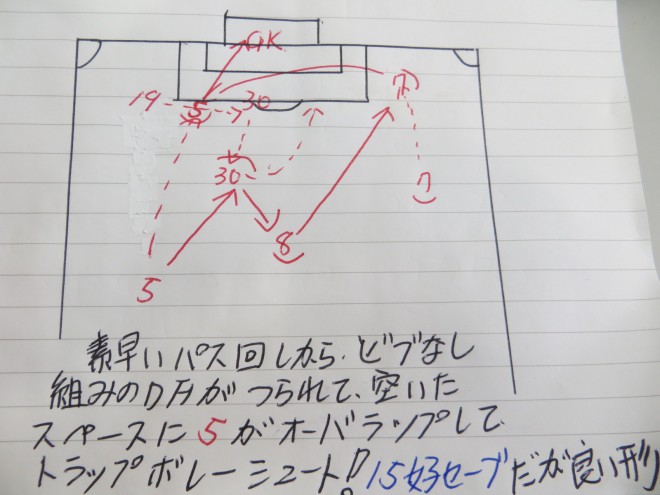 GK
19 5 30 7
30 7
8
5
素早いパス回しから、ビブなし
組みのDFがつられて、空いた
スペースに5がオーバラップして
トラップボレーシュート!15好セーブだが良い形